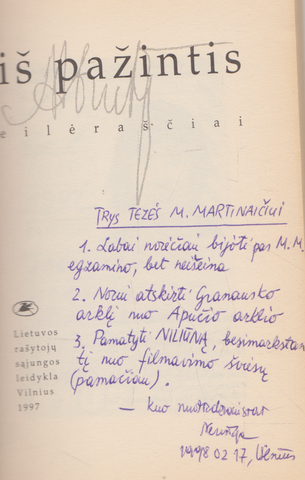 iš pažintis
eilėraščiai
TRYS TEZĖS M. MARTINAIČIUI
1. Labai norėčiau bijoti pas M.M.
egzamino, bet neišeina
2. Noriu atskirti Granausko
arklį nuo Apučio arklio
3. Pamatyti NILIŪNĄ, besimarkstan
tį nuo filmavimo šviesų
(pamačiau).
— Kuo
Neringa
1998 02 17, Vilnius
Lietuvos
rašytojų
sąjungos
leidykla
Vilnius
1997